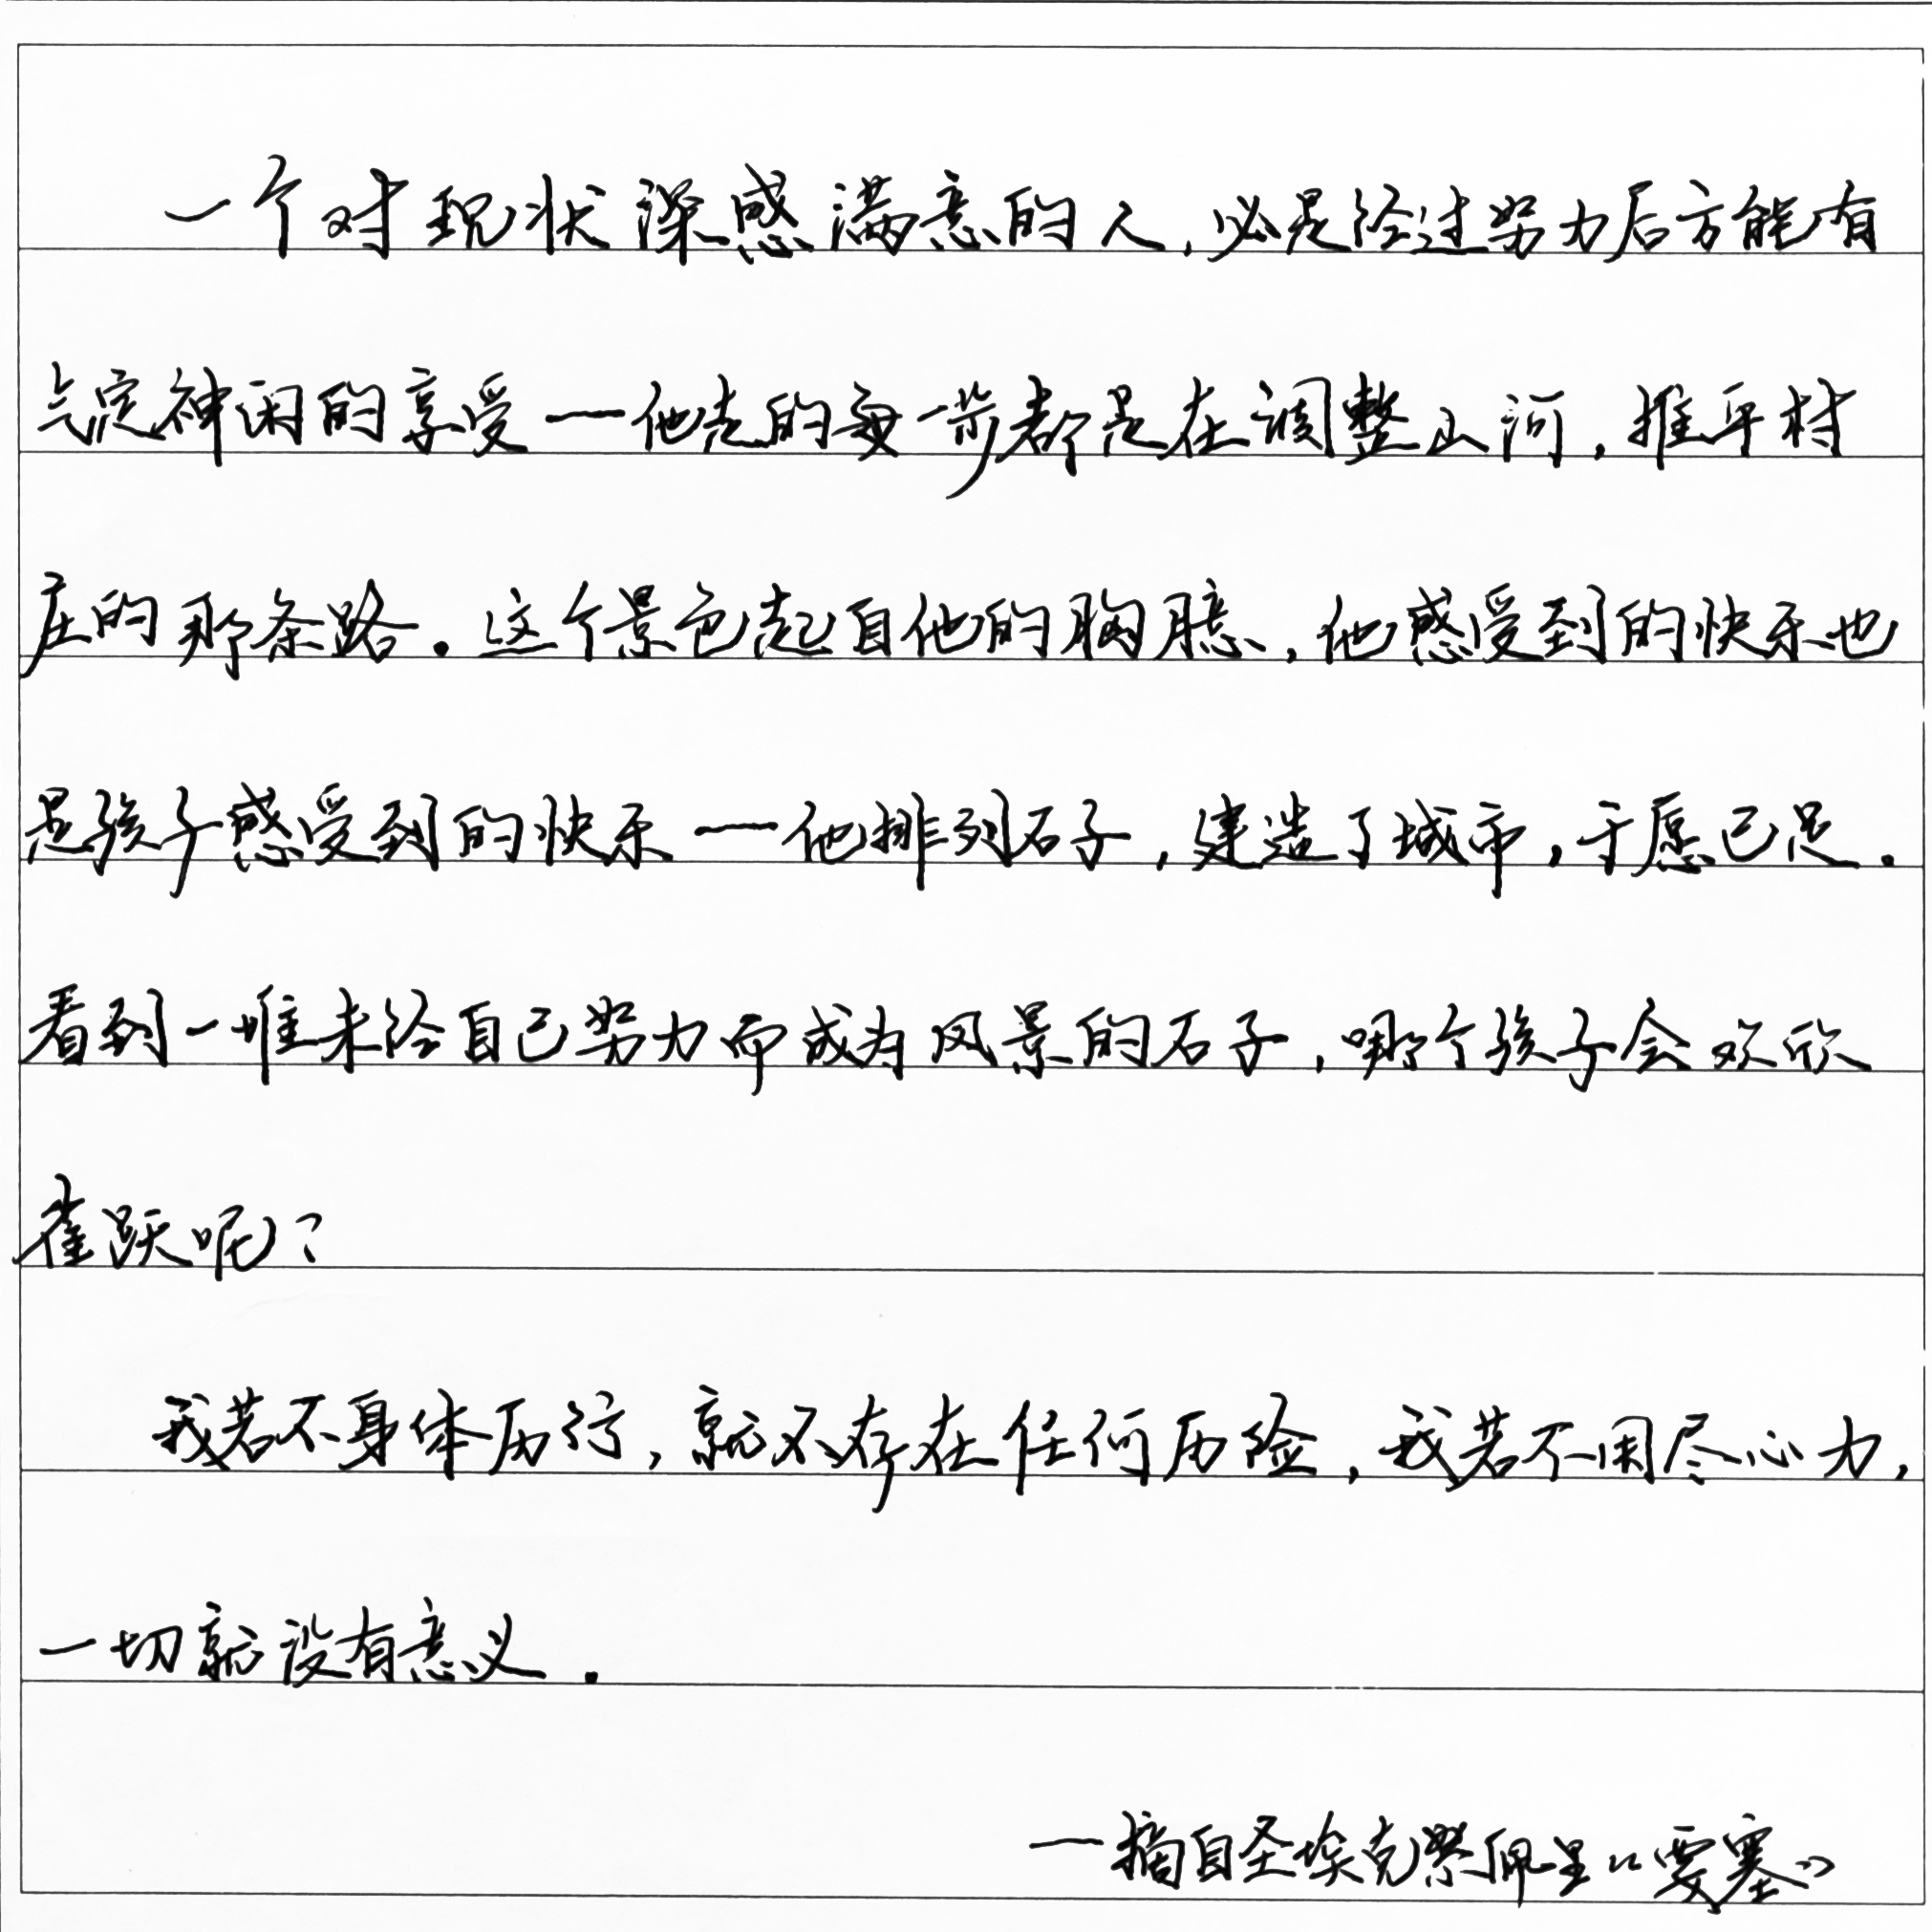 一个对现状深感满意的人,必是经过努力后方能有
气定神闲的享受—他走的每一步都是在调整山河,推平村
庄的那条路.这个景色起自他的胸臆,他感受到的快乐也
是孩子感受到的快乐—他排列石子,建造了城市,于愿已足.
看到一堆未经自己努力而成为风景的石子,哪个孩子会欢欣
雀跃呢?
我若不身体历行,就不存在任何历险,我若不用尽心力,
一切就没有意义.
—摘自圣埃克絮佩里《要塞》